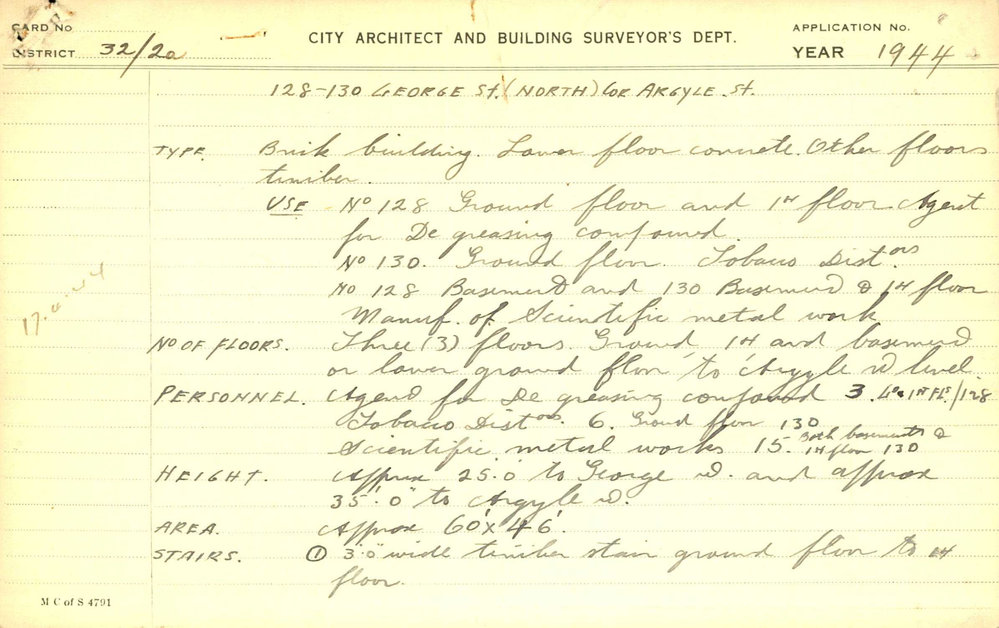 CARD No
DISTRICT 32/2a
CITY ARCHITECT AND BUILDING SURVEYOR'S DEPT.
APPLICATION No.
YEAR 1944
128-130 GEORGE St. (NORTH) Cor ARGYLE St.
TYPE. Brick building. Lower floor concrete. Other floors
timber.
USE No 128 Ground floor and 1st floor Agent
for De greasing compound.
No 130. Ground floor. Tobacco Distors.
No 128 Basement and 130 Basement & 1st floor
Manuf. of Scientific metal work
No OF FLOORS. Three (3) floors. Ground, 1st and basement
or lower ground floor to Argyle st level
PERSONNEL. Agent for De greasing compound 3. 1st Fl./128
Tobacco Distors. 6. Ground floor 130
Scientific metal works 15. Both basements &
1st floor 130
HEIGHT. Approx 25'.0" to George st. and approx
35'.0" to Argyle st.
AREA. Approx 60' x 46'.
STAIRS. ① 3'.0" wide timber stair ground floor to 1st
floor.
M C of S 4791